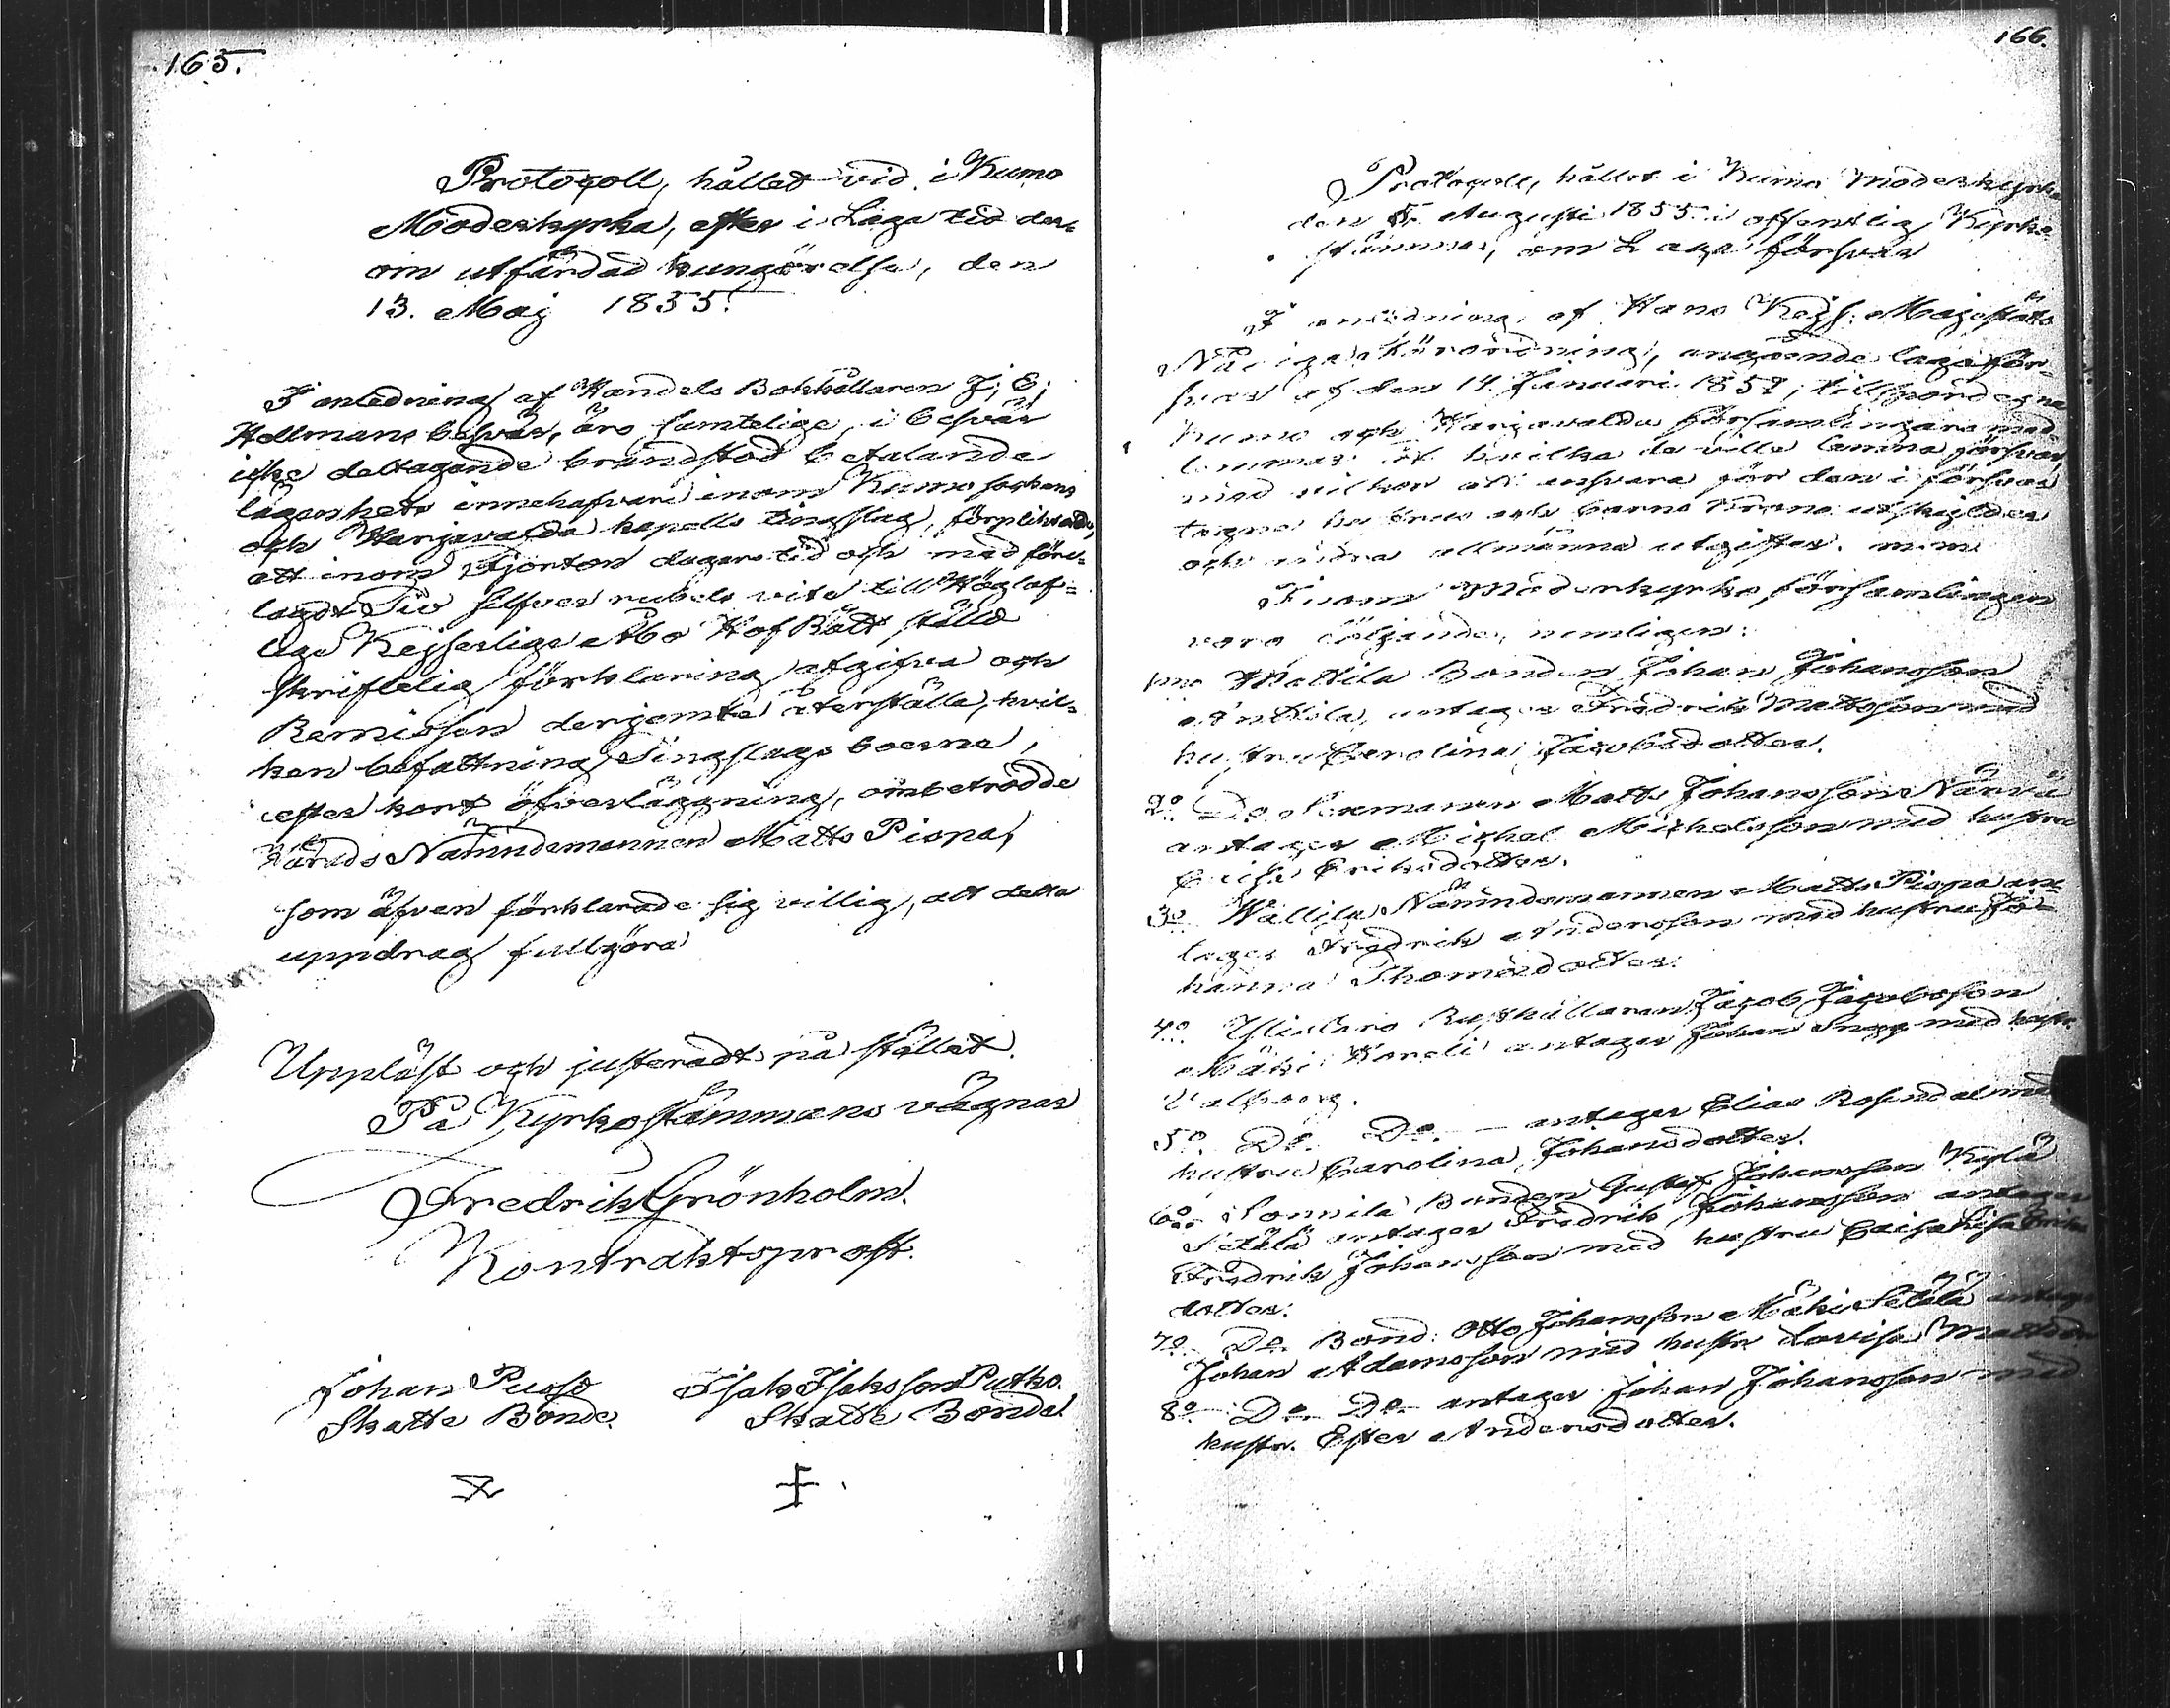 165.
Protocoll, hållet vid i Kumo
Moderkyrka, efter i Laga tid der-
om utfärdad kungörelse, den
13. Maj 1855.
I anledning af Handels Bokhållaren J; E;
Hellmans besvär, äro samtelige, i besvär
icke deltagande brandstod betalande
lägenhets innehafvare inom Kumo sockens
och Harjavalda kapells tingslag, förpliktade,
att inom Fjorton dagars tid och med före-
lagdt Tio silfver rubels vite till Höglof-
lige Kejserlige Åbo Hof Rätt ställd
skriftelig förklaring afgifva och
Remissen derjemte återställa, hvil-
ken befattning Tingslags boerne,
efter kort öfverläggning, ombetrodde
Härads Nämndemannen Matts Piopa,
som äfven förklarade sig villig, att detta
uppdrag fullgöra
Uppläst och justeradt på stället.
På Kyrkostämmans vägnar
Fredrik Grönholm.
Kontraktsprost.
Johan Pusso Isak Isaksson Putko.
Skatte Bonde. Skatte Bonde.
166.
Protocoll, hållet i Kumo Moderkyrka
den 5. Augusti 1855 i offentlig Kyrko
stämma, om Laga försvar
I anledning af Hans Kejs: Majestäts
Nådiga Förordning, angående laga för-
svar af den 14. Januari 185, tillspordes
Kumo och Harjavalda Församlingars med-
lemmar åt hvilka de ville lemna försvar,
med vilkor att ansvara för den i försvar
tagne hustrus och barns Krono utskylder
och andra allmänna utgifter.
Inom Moderkyrko församlingen
voro följande, nemligen:
1mo Mattila Bonden Johan Johansson
Anttila, antager Fredrik Mattsson med
hustru Carolina Jacobsdotter.
2o Do Sexmannen Matts Johansson Närvä
antager Michel Michelsson med hustru
Eriksdotter.
3o Wallila Nämndemannen Matts Piopa an-
tager Fredrik Andersson med hustru Jo-
hanna Thomasdotter.
4o Yliskaro Rusthållaren Jacob Jacobsson
Mäki Kareli antager Johan Snygg med hustr.
Walborg.
5o Do. Do. — antager Elias Rosendal med
hustru Carolina Johansdotter.
6o Sonnila Bonden Gustaf Johansson Kylä
Setälä antager Fredrik Johansson antager
Fredrik Johansson med hustru Caisa Lisa Eriks
dotter.
7o Do. Bond: Otto Johansson Mäki Setälä antager
Johan Adamsson med hustr. Lovisa Mattsd.
8o Do. Do. antager Johan Johansson med
hustr. Ester Andersdotter.